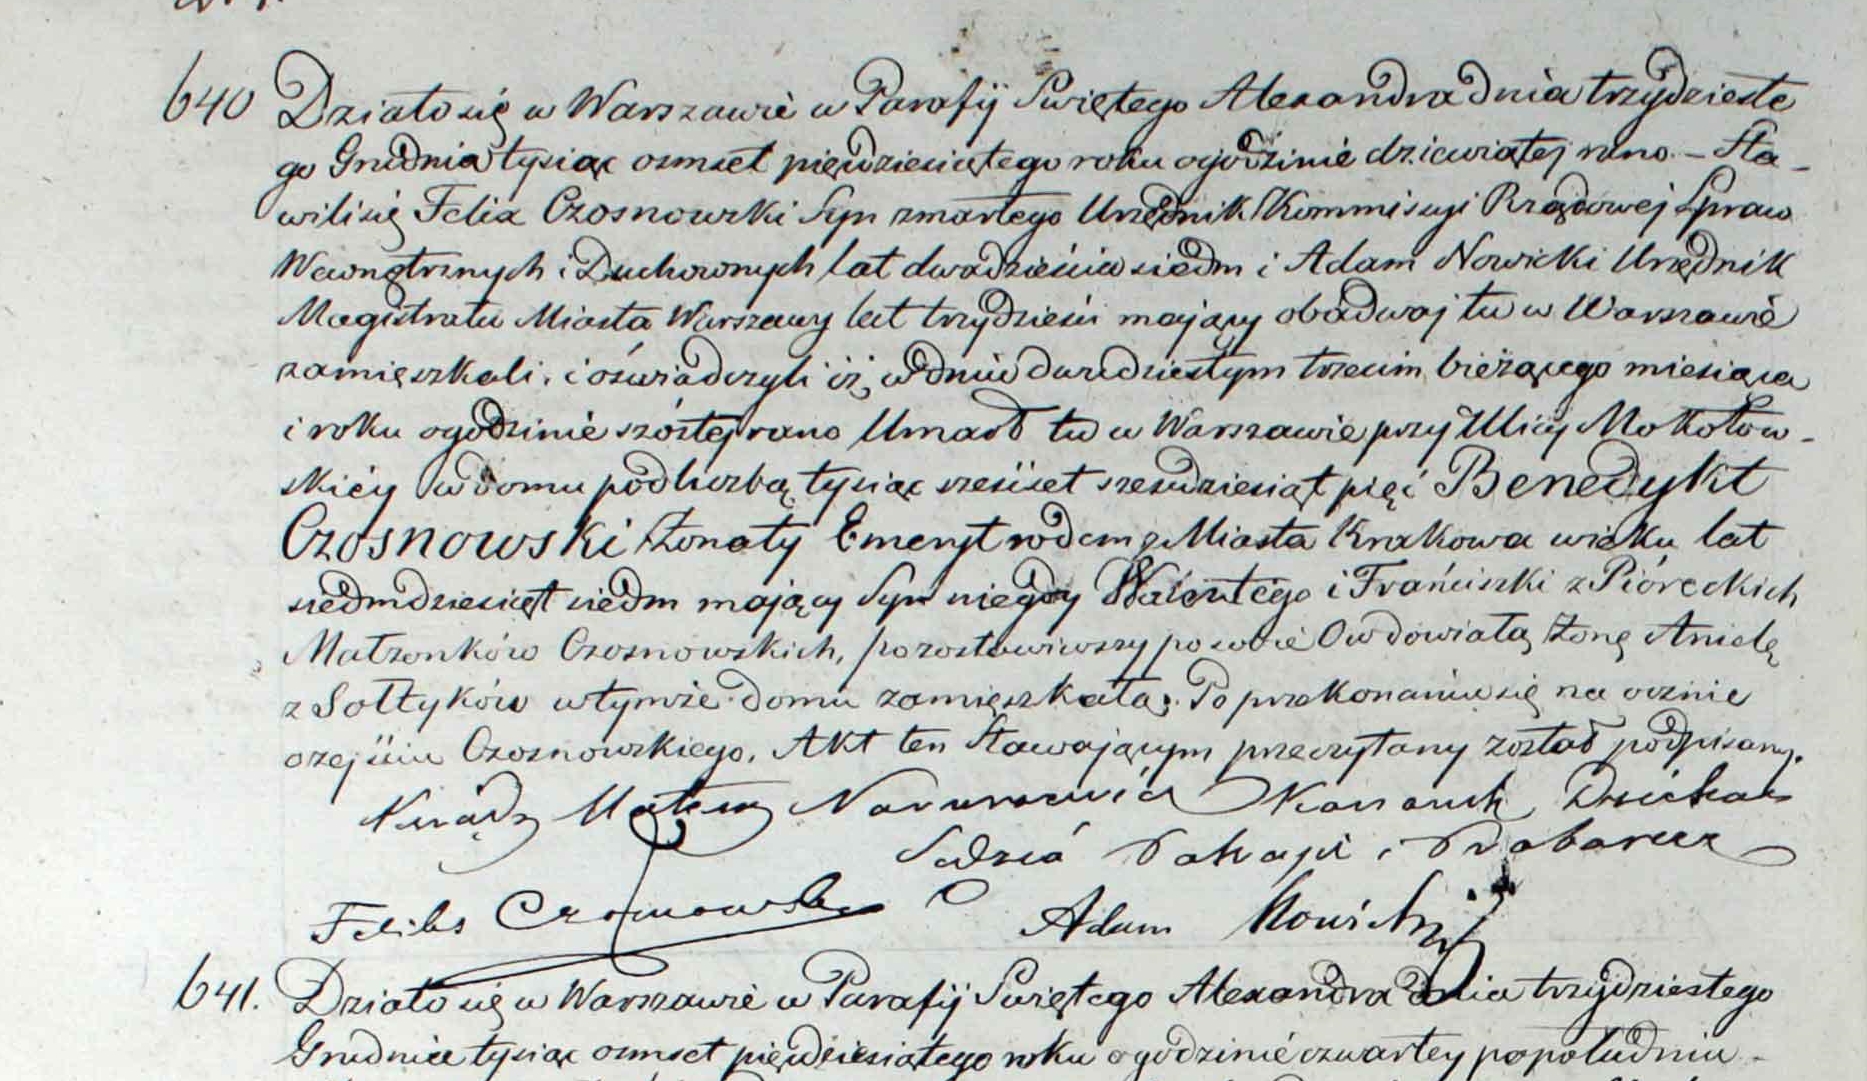 640 Działo się w Warszawie w Parafij Świętego Alexandra dnia trzydzieste
go Grudnia tysiąc osmset pięwdziesiątego roku ogodzinie dziewiątej rano – Sta-
wili się Felix Czosnowski Syn zmarłego Urzędnik Kommissyi Rządowej Spraw
Wewnętrznych i Duchownych lat dwadzieścia siedm i Adam Nowicki Urzędnik
Magistratu Miasta Warszawy lat trzydzieści mający obadwaj tu w Warszawie
zamięszkali, i oświadczyli iż, w dniu dwudziestym trzecim bieżącego miesiąca
i roku ogodzinie szóstej rano Umarł tu w Warszawie przy Ulicy Mokotow-
skiéy w domu pod liczbą tysiąc sześćset sześćdziesiąt pięć Benedykt
Czosnowski Żonaty Emeryt rodem z Miasta Krakowa wieku lat
siedmdziesiąt siedm mający Syn niegdy Walentego i Franciszki z Pióreckich
Małżonków Czosnowskich, pozostawiwszy po sobie Owdowiałą Żonę Anielę
z Sołtyków w tymże domu zamięszkałą. Po przekonaniu się na ocznie
ozejściu Czosnowskiego. Akt ten Stawającym przeczytany został podpisany.
Ksiądz Narunowicz Kanonik Dziekan
Sędzia Pokoju i Proboszcz
Felix Czosnowski Adam Nowicki
641. Działo się w Warszawie w Parafij Świętego Alexandra dnia trzydziestego
Grudnia tysiąc osmset pięwdziesiątego roku ogodzinie czwartey popołudniu –